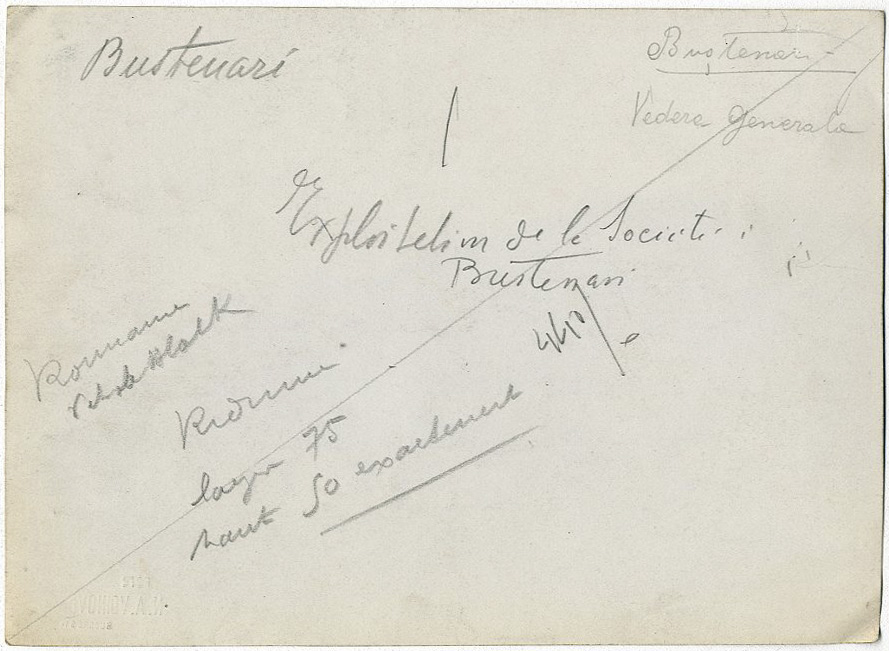 Bustenari
Buștenari
Vedera Generala
Exploitation de la Société
Bustenari
Roumanie
larger 75
haut 50 exactement